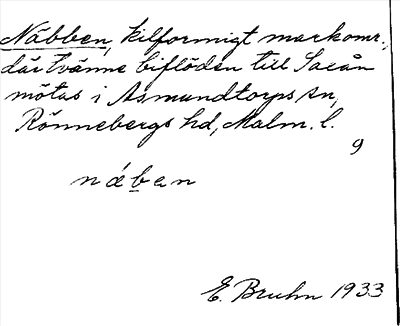 Näbben, kilformigt markomr.,
där tvänne biflöden till Saxån
mötas i Asmundtorps sn,
Rönnebergs hd, Malm. l.
9
náben
E. Bruhn 1933